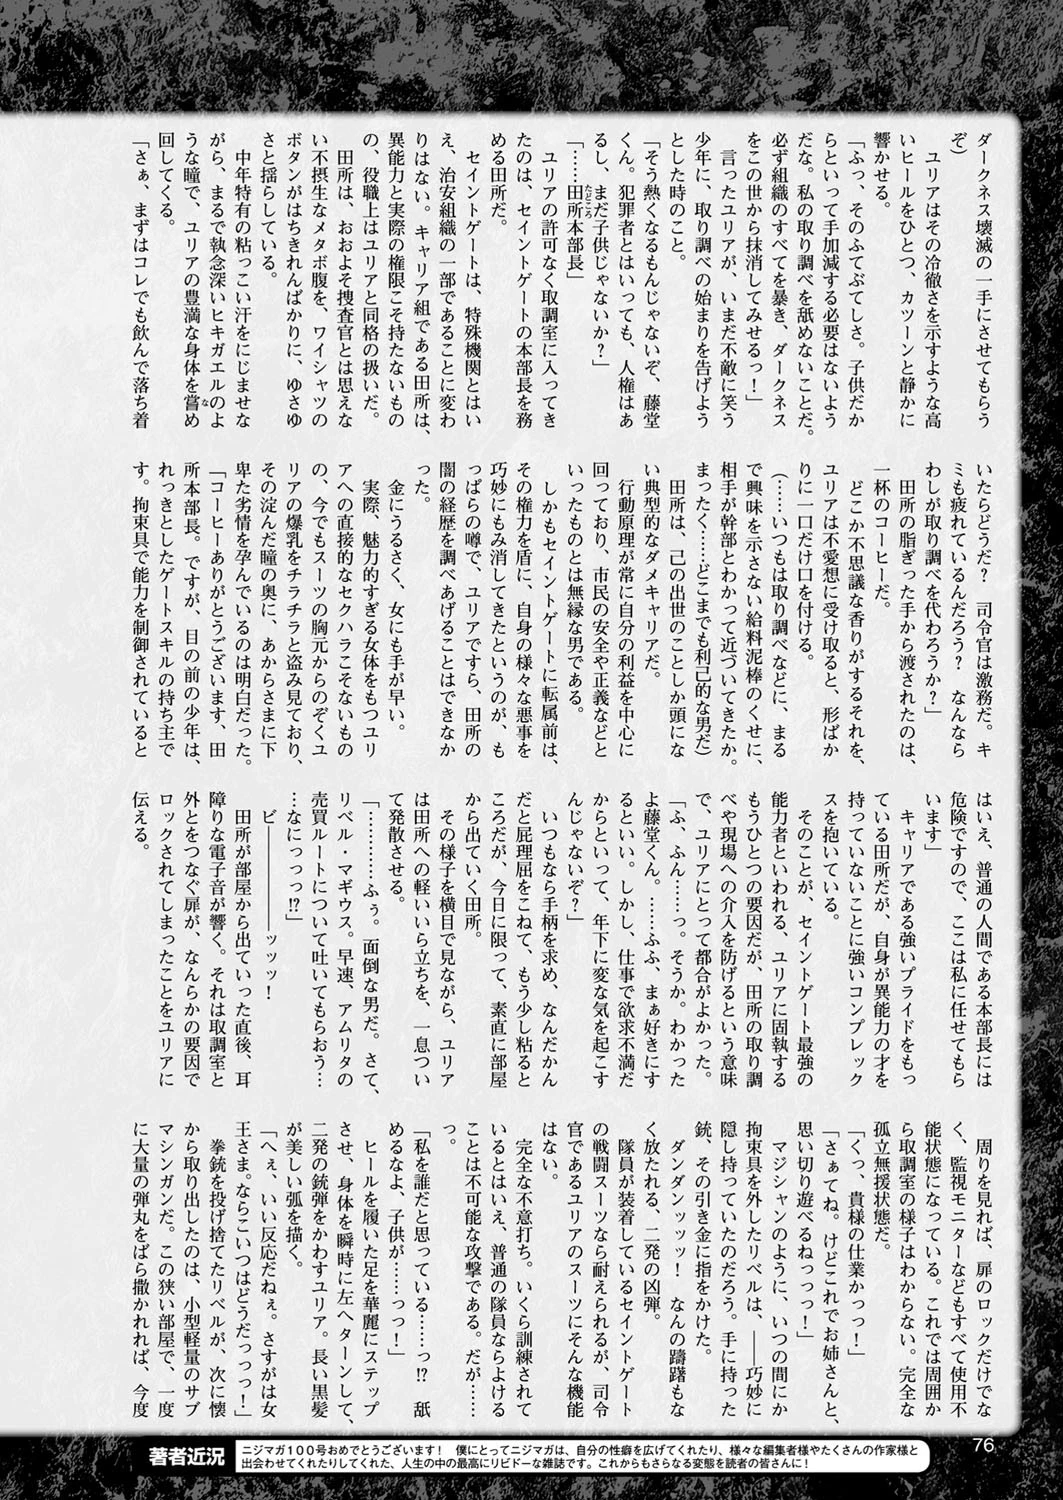 ダークネス壊滅の一手にさせてもらう
ぞ）
　ユリアはその冷徹さを示すような高
いヒールをひとつ、カツーンと静かに
響かせる。
「ふっ、そのふてぶてしさ。子供だか
らといって手加減する必要はないよう
だな。私の取り調べを舐めないことだ。
必ず組織のすべてを暴き、ダークネス
をこの世から抹消してみせるっ！」
　言ったユリアが、いまだ不敵に笑う
少年に、取り調べの始まりを告げよう
とした時のこと。
「そう熱くなるもんじゃないぞ、藤堂
くん。犯罪者とはいっても、人権はあ
るし、まだ子供じゃないか？」
「……田所本部長」
　ユリアの許可なく取調室に入ってき
たのは、セイントゲートの本部長を務
める田所だ。
　セイントゲートは、特殊機関とはい
え、治安組織の一部であることに変わ
りはない。キャリア組である田所は、
異能力と実際の権限こそ持たないもの
の、役職上はユリアと同格の扱いだ。
　田所は、おおよそ捜査官とは思えな
い不摂生なメタボ腹を、ワイシャツの
ボタンがはちきれんばかりに、ゆさゆ
さと揺らしている。
　中年特有の粘っこい汗をにじませな
がら、まるで執念深いヒキガエルのよ
うな瞳で、ユリアの豊満な身体を嘗め
回してくる。
「さぁ、まずはコレでも飲んで落ち着
いたらどうだ？　司令官は激務だ。キ
ミも疲れているんだろう？　なんなら
わしが取り調べを代わろうか？」
　田所の脂ぎった手から渡されたのは、
一杯のコーヒーだ。
　どこか不思議な香りがするそれを、
ユリアは不愛想に受け取ると、形ばか
りに一口だけ口を付ける。
（……いつもは取り調べなどに、まる
で興味を示さない給料泥棒のくせに、
相手が幹部とわかって近づいてきたか。
まったく……どこまでも利己的な男だ）
　田所は、己の出世のことしか頭にな
い典型的なダメキャリアだ。
　行動原理が常に自分の利益を中心に
回っており、市民の安全や正義などと
いったものとは無縁な男である。
　しかもセイントゲートに転属前は、
その権力を盾に、自身の様々な悪事を
巧妙にもみ消してきたというのが、も
っぱらの噂で、ユリアですら、田所の
闇の経歴を調べあげることはできなか
った。
　金にうるさく、女にも手が早い。
　実際、魅力的すぎる女体をもつユリ
アへの直接的なセクハラこそないもの
の、今でもスーツの胸元からのぞくユ
リアの爆乳をチラチラと盗み見ており、
その淀んだ瞳の奥に、あからさまに下
卑た劣情を孕んでいるのは明白だった。
「コーヒーありがとうございます、田
所本部長。ですが、目の前の少年は、
れっきとしたゲートスキルの持ち主で
す。拘束具で能力を制御されていると
はいえ、普通の人間である本部長には
危険ですので、ここは私に任せてもら
います」
　キャリアである強いプライドをもっ
ている田所だが、自身が異能力の才を
持っていないことに強いコンプレック
スを抱いている。
　そのことが、セイントゲート最強の
能力者といわれる、ユリアに固執する
もうひとつの要因だが、田所の取り調
べや現場への介入を防げるという意味
で、ユリアにとって都合がよかった。
「ふ、ふん……っ。そうか。わかった
よ藤堂くん。……ふふ、まぁ好きにす
るといい。しかし、仕事で欲求不満だ
からといって、年下に変な気を起こす
んじゃないぞ？」
　いつもなら手柄を求め、なんだかん
だと屁理屈をこねて、もう少し粘ると
ころだが、今日に限って、素直に部屋
から出ていく田所。
　その様子を横目で見ながら、ユリア
は田所への軽いいら立ちを、一息つい
て発散させる。
「…………ふぅ。面倒な男だ。さて、
リベル・マギウス。早速、アムリタの
売買ルートについて吐いてもらおう…
…なにっっっ!?」
　ビ――――――ッッッ！
　田所が部屋から出ていった直後、耳
障りな電子音が響く。それは取調室と
外とをつなぐ扉が、なんらかの要因で
ロックされてしまったことをユリアに
伝える。
　周りを見れば、扉のロックだけでな
く、監視モニターなどもすべて使用不
能状態になっている。これでは周囲か
ら取調室の様子はわからない。完全な
孤立無援状態だ。
「くっ、貴様の仕業かっっ！」
「さぁってね。けどこれでお姉さんと、
思い切り遊べるねっっっ！」
　マジシャンのように、いつの間にか
拘束具を外したリベルは、――巧妙に
隠し持っていたのだろう。手に持った
銃、その引き金に指をかけた。
　ダンダンッッッ！　なんの躊躇もな
く放たれる、二発の凶弾。
　隊員が装着しているセイントゲート
の戦闘スーツなら耐えられるが、司令
官であるユリアのスーツにそんな機能
はない。
　完全な不意打ち。いくら訓練されて
いるとはいえ、普通の隊員ならよける
ことは不可能な攻撃である。だが……
っ。
「私を誰だと思っている……っ!?　舐
めるなよ、子供が……っっ！」
　ヒールを履いた足を華麗にステップ
させ、身体を瞬時に左へターンして、
二発の銃弾をかわすユリア。長い黒髪
が美しい弧を描く。
「へぇ、いい反応だねぇ。さすがは女
王さま。ならこいつはどうだっっっ！」
　拳銃を投げ捨てたリベルが、次に懐
から取り出したのは、小型軽量のサブ
マシンガンだ。この狭い部屋で、一度
に大量の弾丸をばら撒かれれば、今度
76
著者近況
ニジマガ100号おめでとうございます！　僕にとってニジマガは、自分の性癖を広げてくれたり、様々な編集者様やたくさんの作家様と
出会わせてくれたりしてくれた、人生の中の最高にリビドーな雑誌です。これからもさらなる変態を読者の皆さんに！